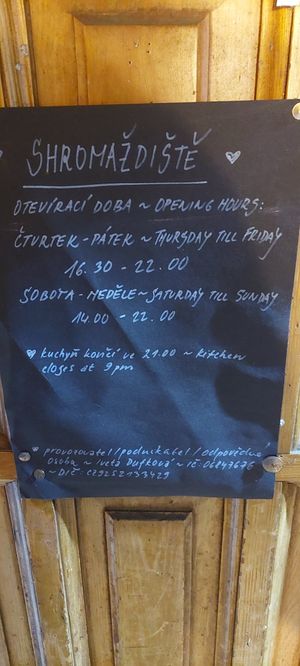 SHROMAŽDIŠTĚ
OTEVÍRACÍ DOBA ~ OPENING HOURS:
ČTVRTEK - PÁTEK ~ THURSDAY TILL FRIDAY
16.30 - 22.00
SOBOTA - NEDĚLE ~ SATURDAY TILL SUNDAY
14.00 - 22.00
♥ kuchyň končí ve 21.00 ~ kitchen
closes at 9 pm
provozovatel/podnikatel/odpovědná
osoba ~ Iveta Dufková ~ IČ:
~ DIČ: